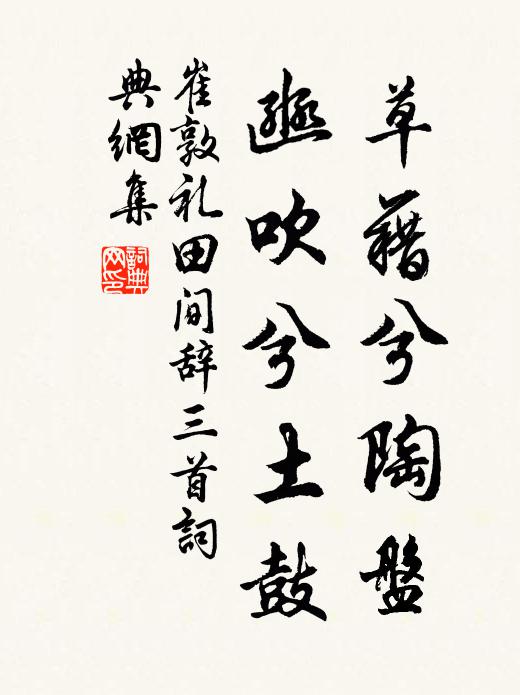 草藉兮陶盤
豳吹兮土鼓
崔敦礼田间辞三首詞
典網集
詞典网印